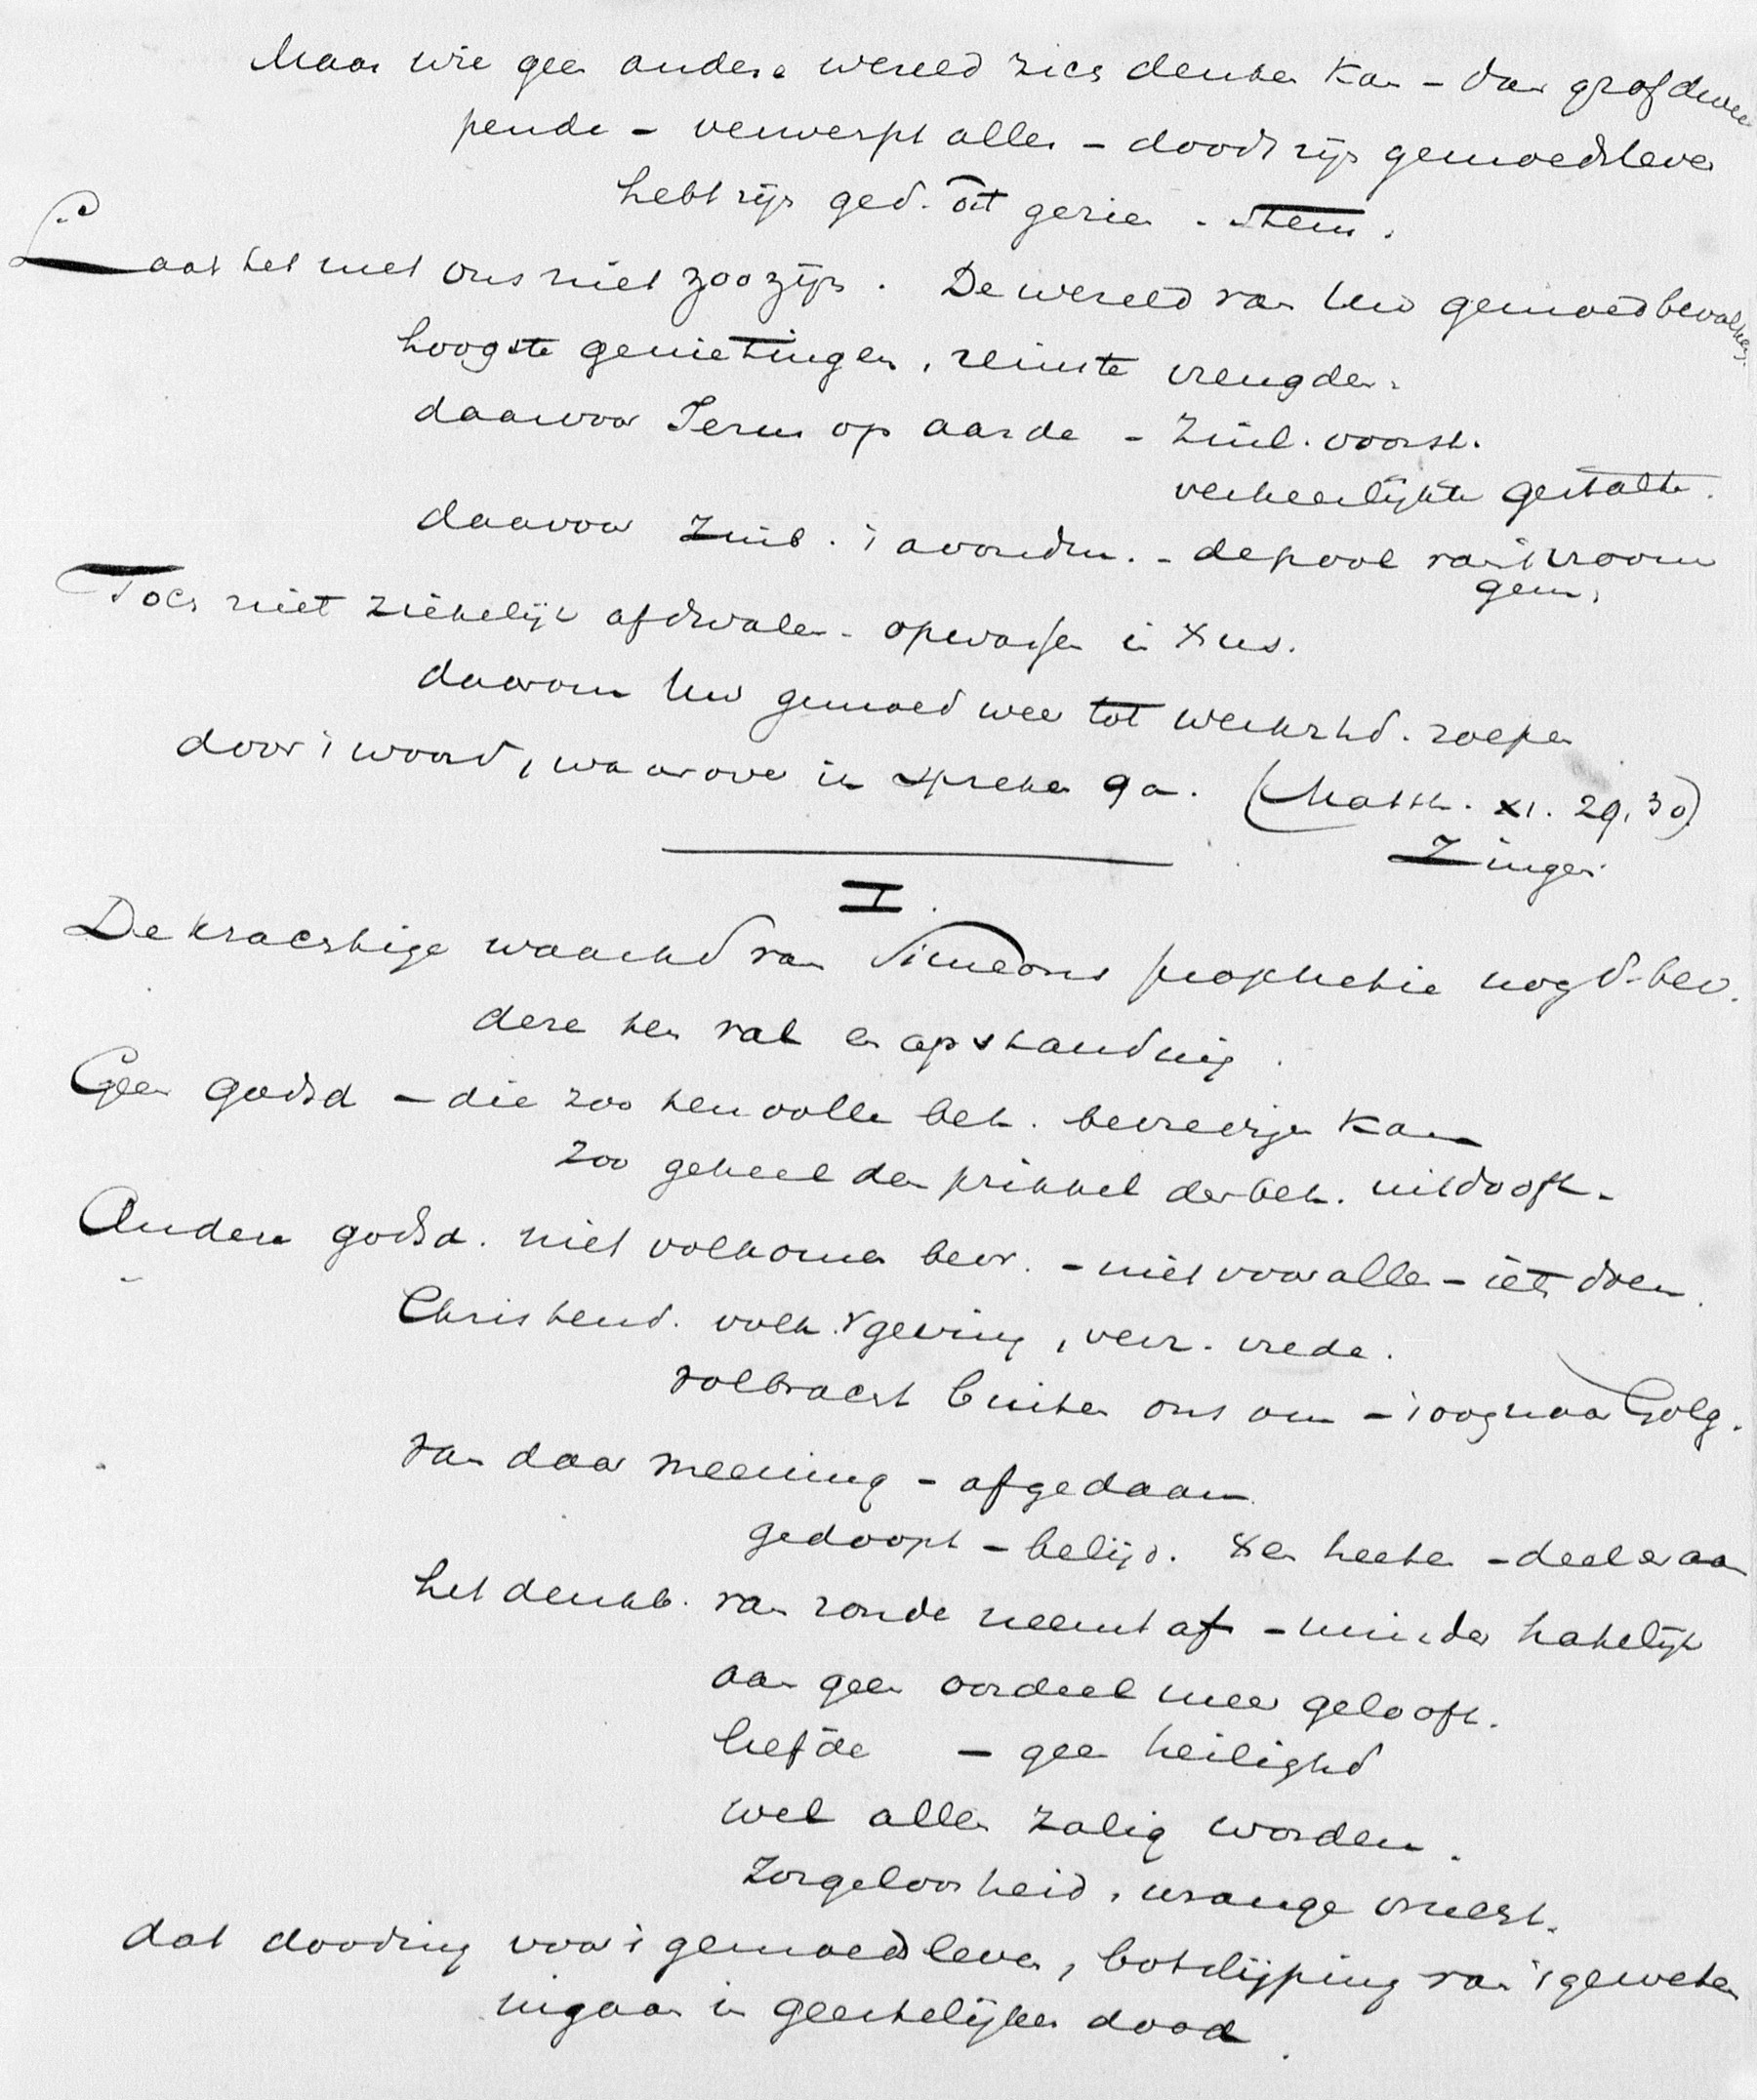 Maar wie geen andere wereld zich denken kan – dan grof dwee
pende – verwerpt alles – doodt zijn gemoedsleven
hebt zijn ged. oit gezien - stem.
Laat het met ons niet zoo zijn. De wereld van Uw gemoed bevolken
hoogste genietingen, reinste vreugden.
daarvoor Jezus op aarde – zinl. voorst.
verheerlijkte gestalte.
daarvoor zinb. 't avondm. – de pool van 't vroom
gem.
Toch niet ziekelijk afdwalen – opwassen in Xus.
daarom Uw gemoed weer tot werkzhd. roepen
door 't woord, waarover ik spreken ga. (Matth. XI. 29, 30)
Zingen.
I.
De krachtige waarhd van Simeons prophetie nog d. bev.
deze ten val en opstanding.
Geen godsd – die zoo ten volle beh. bevredigen kan
zoo geheel den prikkel der beh. uitdooft.
Andere godsd. niet volkomen bevr. – niet voor allen – iets doen.
Christend. volk. vgeving, verz. vrede.
volbracht buiten ons om – 't oog naar Golg.
van daar meening – afgedaan.
gedoopt – belijd. Xen heeten – deel er aan
het denkb. van zonde neemt af – minder hatelijk
aan geen oordeel meer gelooft.
liefde – geen heilighd
wel allen zalig worden.
Zorgeloosheid, wrange vrucht.
dat dooding voor 't gemoedsleven, botslijping van 't geweten
ingaan in geestelijken dood.